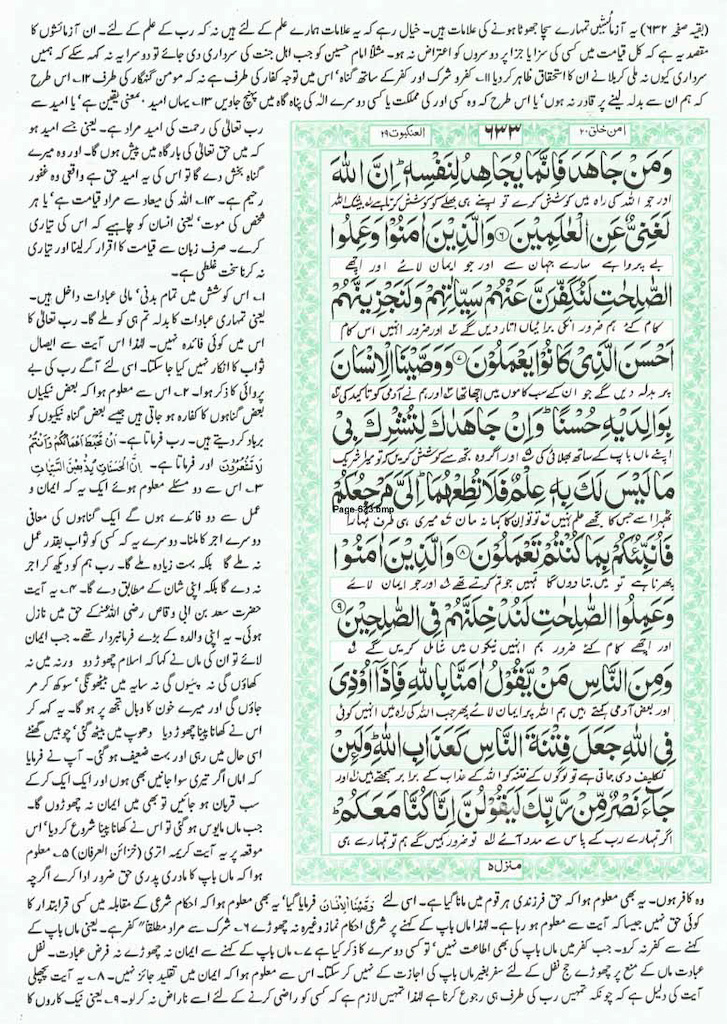 (بقیہ صفحہ ۶۳۲) یہ آزمائشیں تمہارے سچا جھوٹا ہونے کی علامات ہیں۔ خیال رہے کہ یہ علامات ہمارے علم کے لئے ہیں نہ کہ رب کے علم کے لئے۔ ان آزمائشوں کا
مقصد یہ ہے کہ کل قیامت میں کسی کی سزا یا جزا پر دوسروں کو اعتراض نہ ہو۔ مثلاً امام حسین کو جب اہل جنت کی سرداری دی جائے تو دوسرا یہ نہ کہہ سکے کہ ہمیں
سرداری کیوں نہ ملی کربلا نے ان کا استحقاق ظاہر کر دیا ۱۱۔ کفر و شرک اور کفر کے ساتھ گناہ' اس میں توجہ کفار کی طرف ہے نہ کہ مومن گنہگار کی طرف ۱۲۔ اس طرح
کہ ہم ان سے بدلہ لینے پر قادر نہ ہوں' یا اس طرح کہ وہ کسی اور کی مملکت یا کسی دوسرے الٰہ کی پناہ گاہ میں پہنچ جاویں ۱۳۔ یہاں امید بمعنی یقین ہے' یا امید سے
رب تعالیٰ کی رحمت کی امید مراد ہے۔ یعنی جسے امید ہو
کہ میں حق تعالیٰ کی بارگاہ میں پیش ہوں گا۔ اور وہ میرے
گناہ بخش دے گا تو اس کی یہ امید حق ہے واقعی وہ غفور
رحیم ہے۔ ۱۴۔ اللہ کی میعاد سے مراد قیامت ہے' یا ہر
شخص کی موت' یعنی انسان کو چاہیے کہ اس کی تیاری
کرے۔ صرف زبان سے قیامت کا اقرار کر لینا اور تیاری
نہ کرنا سخت غلطی ہے۔
۱۔ اس کوشش میں تمام بدنی' مالی عبادات داخل ہیں۔
یعنی تمہاری عبادات کا بدلہ تم ہی کو ملے گا۔ رب تعالیٰ کا
اس میں کوئی فائدہ نہیں۔ لہٰذا اس آیت سے ایصال
ثواب کا انکار نہیں کیا جا سکتا۔ اسی لئے آگے رب کی بے
پروائی کا ذکر ہوا۔ ۲۔ اس سے معلوم ہوا کہ بعض نیکیاں
بعض گناہوں کا کفارہ ہو جاتی ہیں جیسے بعض گناہ نیکیوں کو
برباد کر دیتے ہیں۔ رب فرماتا ہے۔ اَنْ تَحْبَطَ اَعْمَالُكُمْ وَاَنْتُمْ
لَا تَشْعُرُوْنَ اور فرماتا ہے۔ اِنَّ الْحَسَنَاتِ يُذْهِبْنَ السَّيِّاٰتِ
۳۔ اس سے دو مسئلے معلوم ہوئے ایک یہ کہ ایمان و
عمل سے دو فائدے ہوں گے ایک گناہوں کی معافی
دوسرے اجر کا ملنا۔ دوسرے یہ کہ کسی کو ثواب بقدر عمل
نہ ملے گا بلکہ بہت زیادہ ملے گا۔ رب ہم کو دیکھ کر اجر
نہ دے گا بلکہ اپنی شان کے مطابق دے گا۔ ۴۔ یہ آیت
حضرت سعد بن ابی وقاص رضی اللہ عنہ کے حق میں نازل
ہوئی۔ یہ اپنی والدہ کے بڑے فرمانبردار تھے۔ جب ایمان
لائے تو ان کی ماں نے کہا کہ اسلام چھوڑ دو ورنہ میں نہ
کھاؤں گی نہ پئیوں گی نہ سایہ میں بیٹھونگی' سوکھ کر مر
جاؤں گی اور میرے خون کا وبال تجھ پر ہو گا۔ یہ کہہ کر
اس نے کھانا پینا چھوڑ دیا دھوپ میں بیٹھ گئی' چوبیس گھنٹے
اسی حال میں رہی اور بہت ضعیف ہو گئی۔ آپ نے فرمایا
کہ اماں اگر تیری سو جانیں بھی ہوں اور ایک ایک کر کے
سب قربان ہو جائیں تو بھی میں ایمان نہ چھوڑوں گا۔
جب ماں مایوس ہو گئی تو اس نے کھانا پینا شروع کر دیا' اس
موقعہ پر یہ آیت کریمہ اتری (خزائن العرفان) ۵۔ معلوم
ہوا کہ ماں باپ کا مادری پدری حق ضرور ادا کرے اگرچہ
امن خلق ۲۰
۶۳۳
العنكبوت ۲۹
وَمَنْ جَاهَدَ فَاِنَّمَا يُجَاهِدُ لِنَفْسِهٖ ؕ اِنَّ اللّٰهَ
اور جو اللہ کی راہ میں کوشش کرے تو اپنے ہی بھلے کو کوشش کرتا ہے ۱؎ بیشک اللہ
لَغَنِیٌّ عَنِ الْعٰلَمِیْنَ ﴿۶﴾ وَالَّذِیْنَ اٰمَنُوْا وَعَمِلُوا
بے پرواہ ہے سارے جہان سے اور جو ایمان لائے اور اچھے
الصّٰلِحٰتِ لَنُكَفِّرَنَّ عَنْهُمْ سَیِّاٰتِهِمْ وَلَنَجْزِیَنَّهُمْ
کام کئے ہم ضرور انکی برائیاں اتار دیں گے ۲؎ اور ضرور انہیں اس کام
اَحْسَنَ الَّذِیْ كَانُوْا یَعْمَلُوْنَ ﴿۷﴾ وَوَصَّیْنَا الْاِنْسَانَ
پر بدلہ دیں گے جو ان کے سب کاموں میں اچھا تھا ۳؎ اور ہم نے آدمی کو تاکید کی ۴؎
بِوَالِدَیْهِ حُسْنًا ؕ وَاِنْ جَاهَدٰكَ لِتُشْرِكَ بِیْ
اپنے ماں باپ کے ساتھ بھلائی کی ۵؎ اور اگر وہ تجھ سے کوشش کریں کہ تو میرا شریک
مَا لَیْسَ لَكَ بِهٖ عِلْمٌ فَلَا تُطِعْهُمَا ؕ اِلَیَّ مَرْجِعُكُمْ
Page-633.bmp
ٹھہرائے جس کا تجھے علم نہیں ۶؎ تو تو ان کا کہا نہ مان ۷؎ میری ہی طرف تمہارا
فَاُنَبِّئُكُمْ بِمَا كُنْتُمْ تَعْمَلُوْنَ ﴿۸﴾ وَالَّذِیْنَ اٰمَنُوْا
پھرنا ہے تو میں بتا دوں گا تمہیں جو تم کرتے تھے ۸؎ اور جو ایمان لائے
وَعَمِلُوا الصّٰلِحٰتِ لَنُدْخِلَنَّهُمْ فِی الصّٰلِحِیْنَ ﴿۹﴾
اور اچھے کام کئے ضرور ہم انہیں نیکوں میں شامل کریں گے ۹؎
وَمِنَ النَّاسِ مَنْ یَّقُوْلُ اٰمَنَّا بِاللّٰهِ فَاِذَاۤ اُوْذِیَ
اور بعض آدمی کہتے ہیں ہم اللہ پر ایمان لائے پھر جب اللہ کی راہ میں انہیں کوئی
فِی اللّٰهِ جَعَلَ فِتْنَةَ النَّاسِ كَعَذَابِ اللّٰهِ ؕ وَلَئِنْ
تکلیف دی جاتی ہے تو لوگوں کے فتنہ کو اللہ کے عذاب کے برابر سمجھتے ہیں اور
جَآءَ نَصْرٌ مِّنْ رَّبِّكَ لَیَقُوْلُنَّ اِنَّا كُنَّا مَعَكُمْ ؕ
اگر تمہارے رب کے پاس سے مدد آئے تو ضرور کہیں گے ہم تو تمہارے ہی
منزل ۵
وہ کافر ہوں۔ یہ بھی معلوم ہوا کہ حق فرزندی ہر قوم میں مانا گیا ہے۔ اسی لئے وَصَّيْنَا الْاِنْسَانَ فرمایا گیا' یہ بھی معلوم ہوا کہ احکام شرعی کے مقابلہ میں کسی قرابتدار کا
کوئی حق نہیں جیسا کہ آیت سے معلوم ہو رہا ہے۔ لہٰذا ماں باپ کے کہنے پر شرعی احکام نماز وغیرہ نہ چھوڑے ۶۔ شرک سے مراد مطلقاً کفر ہے۔ یعنی ماں باپ کے
کہنے سے کفر نہ کرو۔ جب کفر میں ماں باپ کی بھی اطاعت نہیں' تو کسی دوسرے کا ذکر کیا ہے ۷۔ ماں باپ کے کہنے سے ایمان نہ چھوڑے نہ فرض عبادت۔ نفل
عبادت ماں کے منع پر چھوڑے حج نفل کے لئے سفر بغیر ماں باپ کی اجازت کے نہیں کر سکتا۔ اس سے معلوم ہوا کہ ایمان میں تقلید جائز نہیں۔ ۸۔ یہ آیت پچھلی
آیت کی دلیل ہے کہ چونکہ تمہیں رب کی طرف ہی رجوع کرنا ہے لہٰذا تمہیں لازم ہے کہ کسی کو راضی کرنے کے لئے اسے ناراض نہ کر لو۔ ۹۔ یعنی نیک کاروں کا